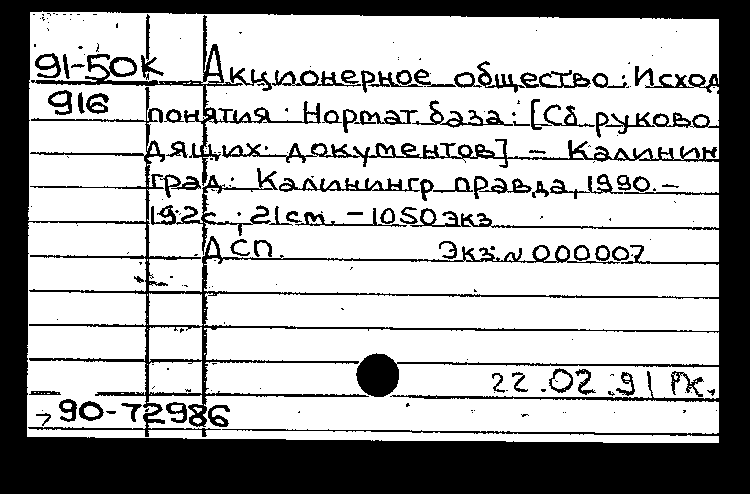 91-50К Акционерное общество: Исход
916 понятия. Нормат. база: [Сб руково
дящих документов] – Калинин
град: Калинингр правда, 1990. –
192с.; 21см. – 1050 экз
ДСП. Экз. N 000007
22.02.91 РК.
→ 90-72986